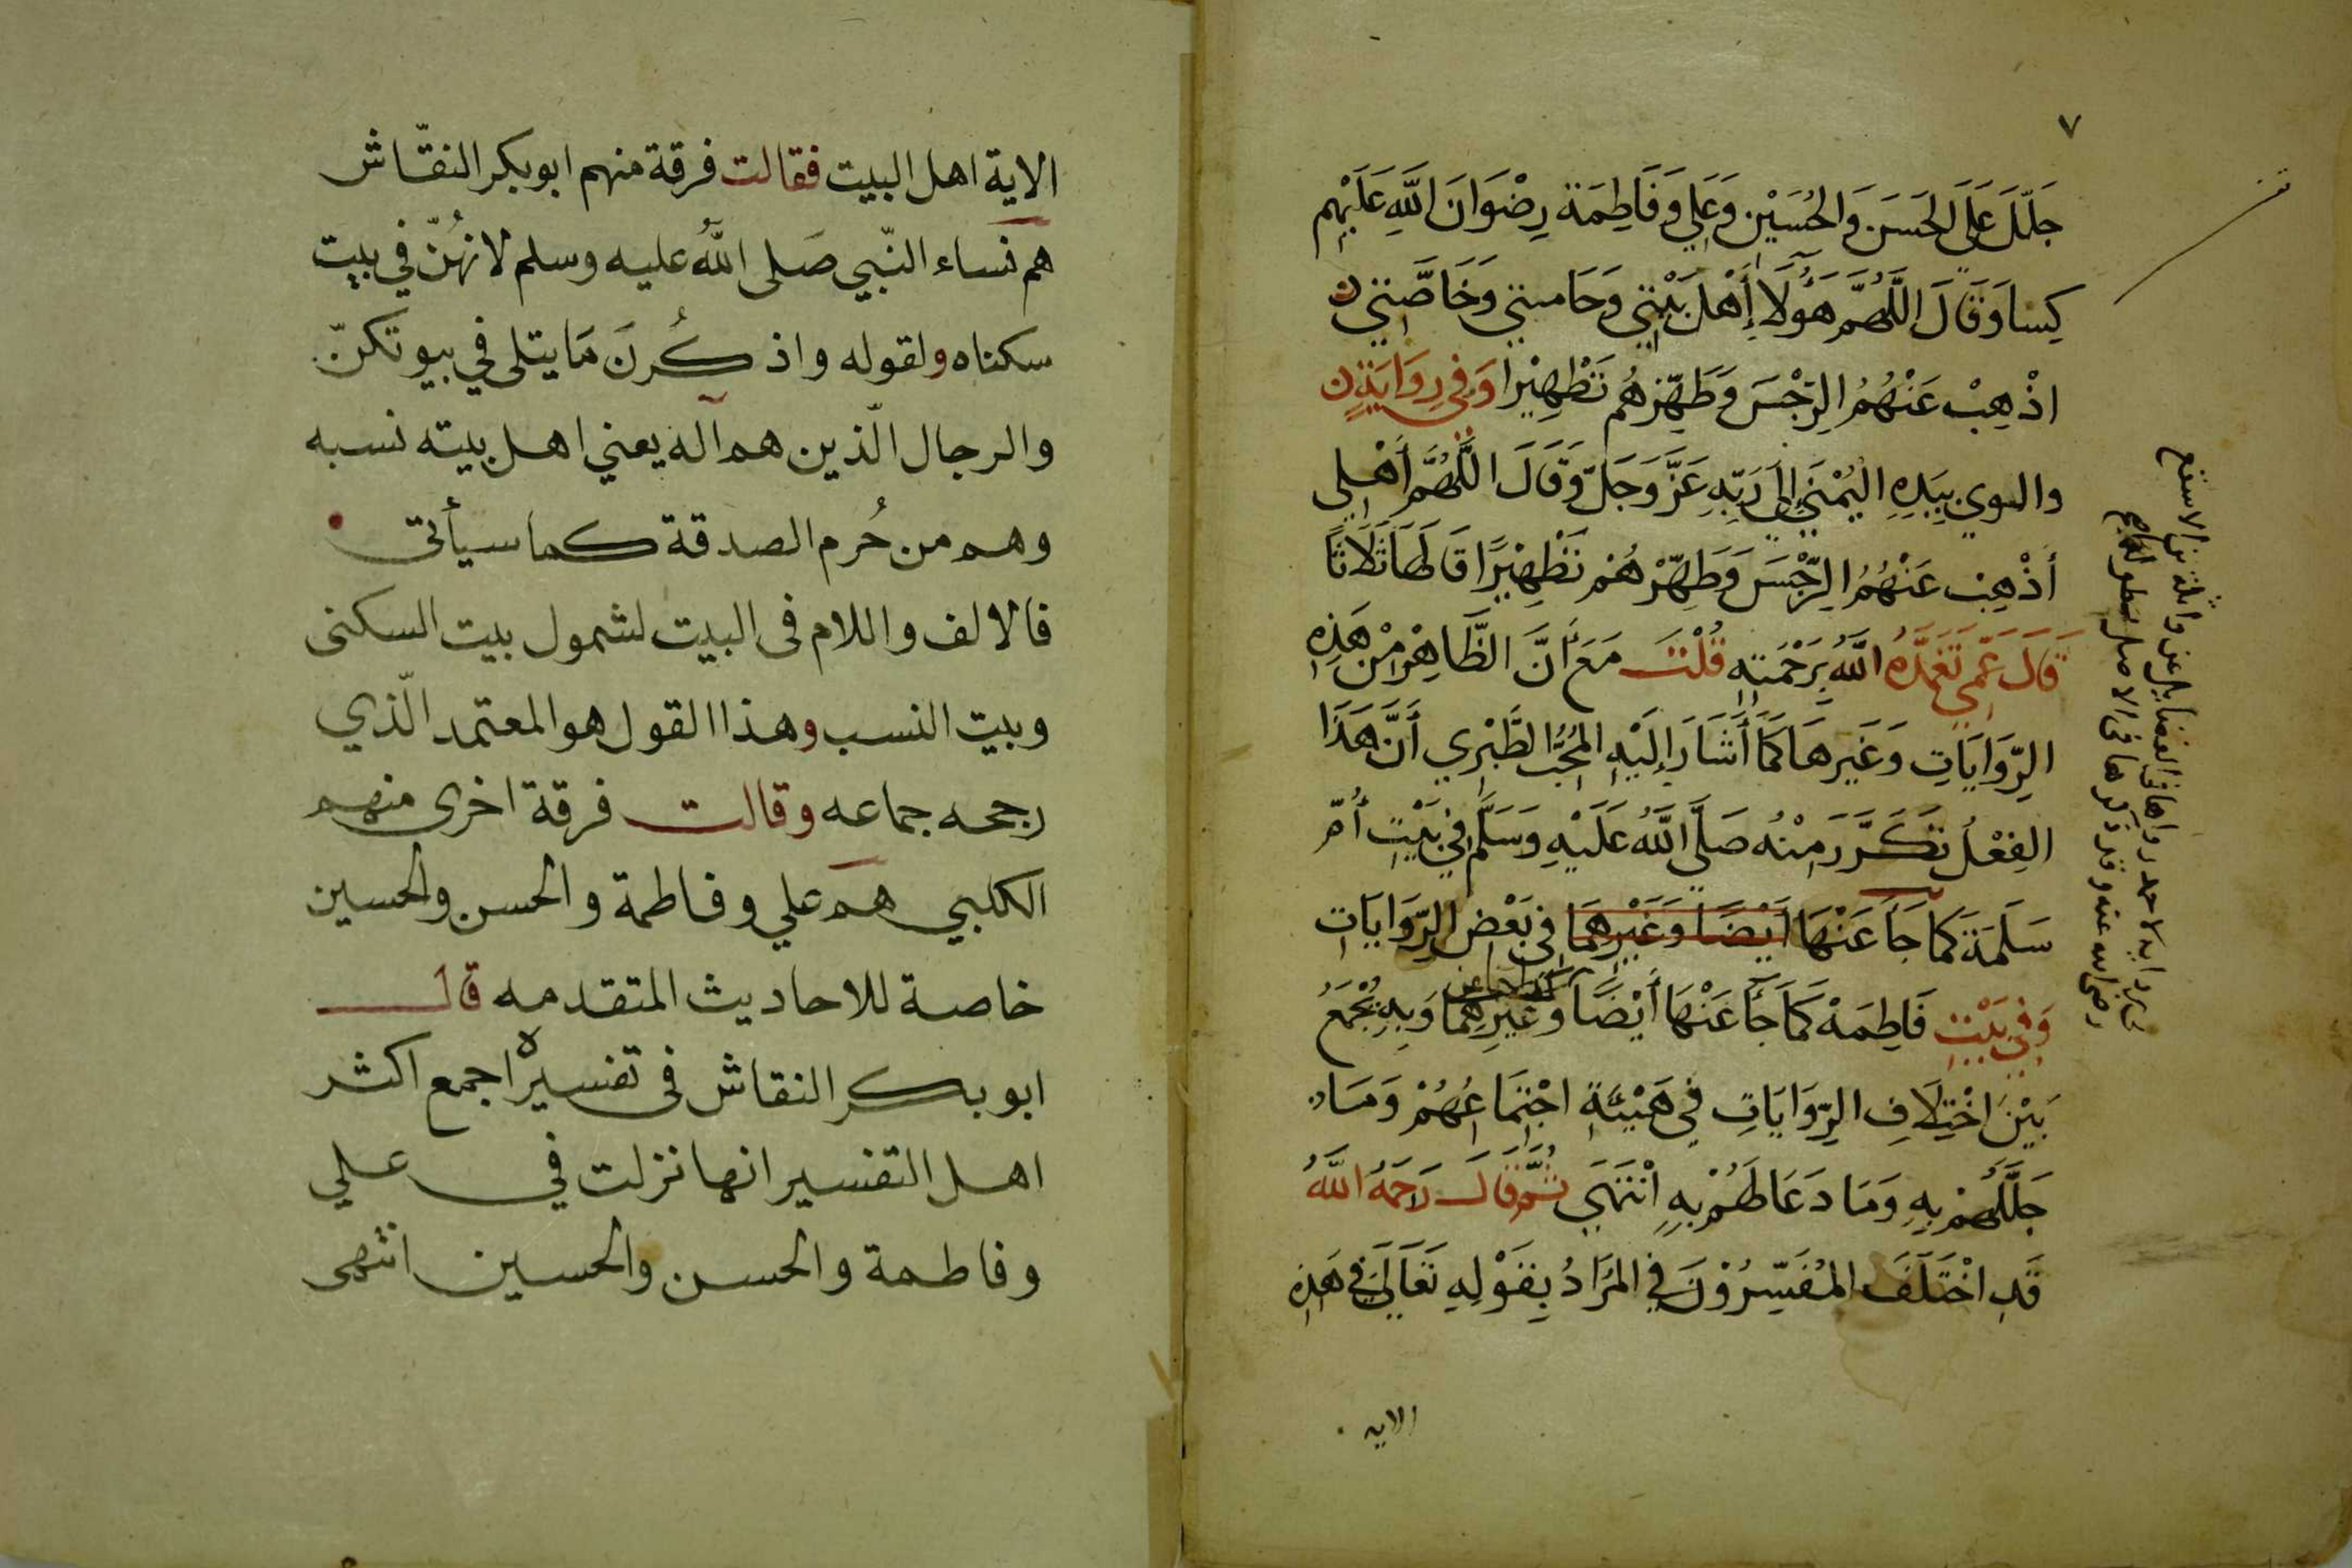 ٧
جَلَّلَ عَلَى الحَسَنِ وَالحُسَيْنِ وَعَلِي وَفَاطِمَة رِضْوَانَ اللَّهِ عَلَيْهِم
كِسَا وَقَالَ اللَّهُمَّ هَؤُلَاءِ أَهْلَ بَيْتِي وَحَامتي وَخَاصَّتِي
اذْهِبْ عَنْهُمُ الرِّجْسَ وَطَهِّرْهُم تَطْهِيْرا وَفِي رِوَايَةٍ
والوي بِيَدِهِ اليُمْنَى إِلَى رَبِّهِ عَزَّ وَجَلّ وَقَالَ اللَّهُمَّ أَهْلِي
أذْهِبْ عَنْهُمُ الرِّجْسَ وَطَهِّرْهُمْ تَطْهِيْرًا قَالَهَا ثَلَاثًا
قَالَ عَمِّي تَغَمَّدَهُ اللَّهُ بِرَحْمَتِهِ قُلْتُ مَعَ أَنَّ الظَّاهِرْ مِنْ هَذِهِ
الرِّوَايَاتِ وَغَيرهَا كَمَا أَشَارَ إِلَيْهِ المُحُبُّ الطَّبْرِي أَنَّ هَذَا
الفِعْلُ تَكَرَّرَ مِنْهُ صَلَّى اللَّهُ عَلَيْهِ وَسَلَّم فِي بَيْتِ أُمِّ
سَلَمَة كَمَا جَا عَنْهَا أَيْضًا وَغَيْرِهِمَا في بَعْضِ الرِّوَايَاتِ
وَفِي بَيْتِ فَاطِمَهْ كَمَا جَآ عَنْهَا أَيْضًا وَغَيْرِهِمَا وَبِهِ يُجْمَعُ
بَيْنَ اخْتِلَافِ الرِّوَايَاتِ فِي هَيْئَةِ اجْتِمَاعُهُمْ وَمَا
جَلَّلَهُمْ بِهِ وَمَا دَعَا لَهُمْ بِهِ انْتَهَى ثُمَّ قَالَ رَحِمَهُ اللَّهُ
قَدِ اخْتَلَفَ المُفَسِّرُوْنَ فِي المُرَادُ بِقَوْلِهِ تَعَالَى فِي هَذِهِ
الايه
الاية اهل البيت فقالت فرقة منهم ابو بكر النقّاش
هم نساء النّبي صَلى اللهُ عليه وسلم لانهُنّ في بيت
سكناه ولقوله واذكُرنَ مَا يتلى في بيوتكنّ
والرجال الّذين هم آله يعني اهل بيته نسبه
وهم من حُرم الصدقة كما سيأتى
فالالف واللام فى البيت لشمول بيت السكنى
وبيت النسب وهذا القول هو المعتمد الّذي
رجحه جماعه وقالت فرقة اخرى منهم
الكلبي هم علي وفاطمة والحسن والحسين
خاصة للاحاديث المتقدمه قال
ابو بكر النقاش فى تفسيره اجمع اكثر
اهل التفسير انها نزلت في علي
وفاطمة والحسن والحسين انتهى